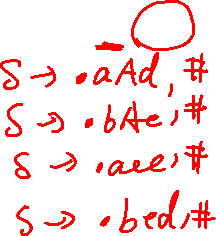 S → .aAd, #
S → .bAe, #
S → .aee, #
S → .bed, #